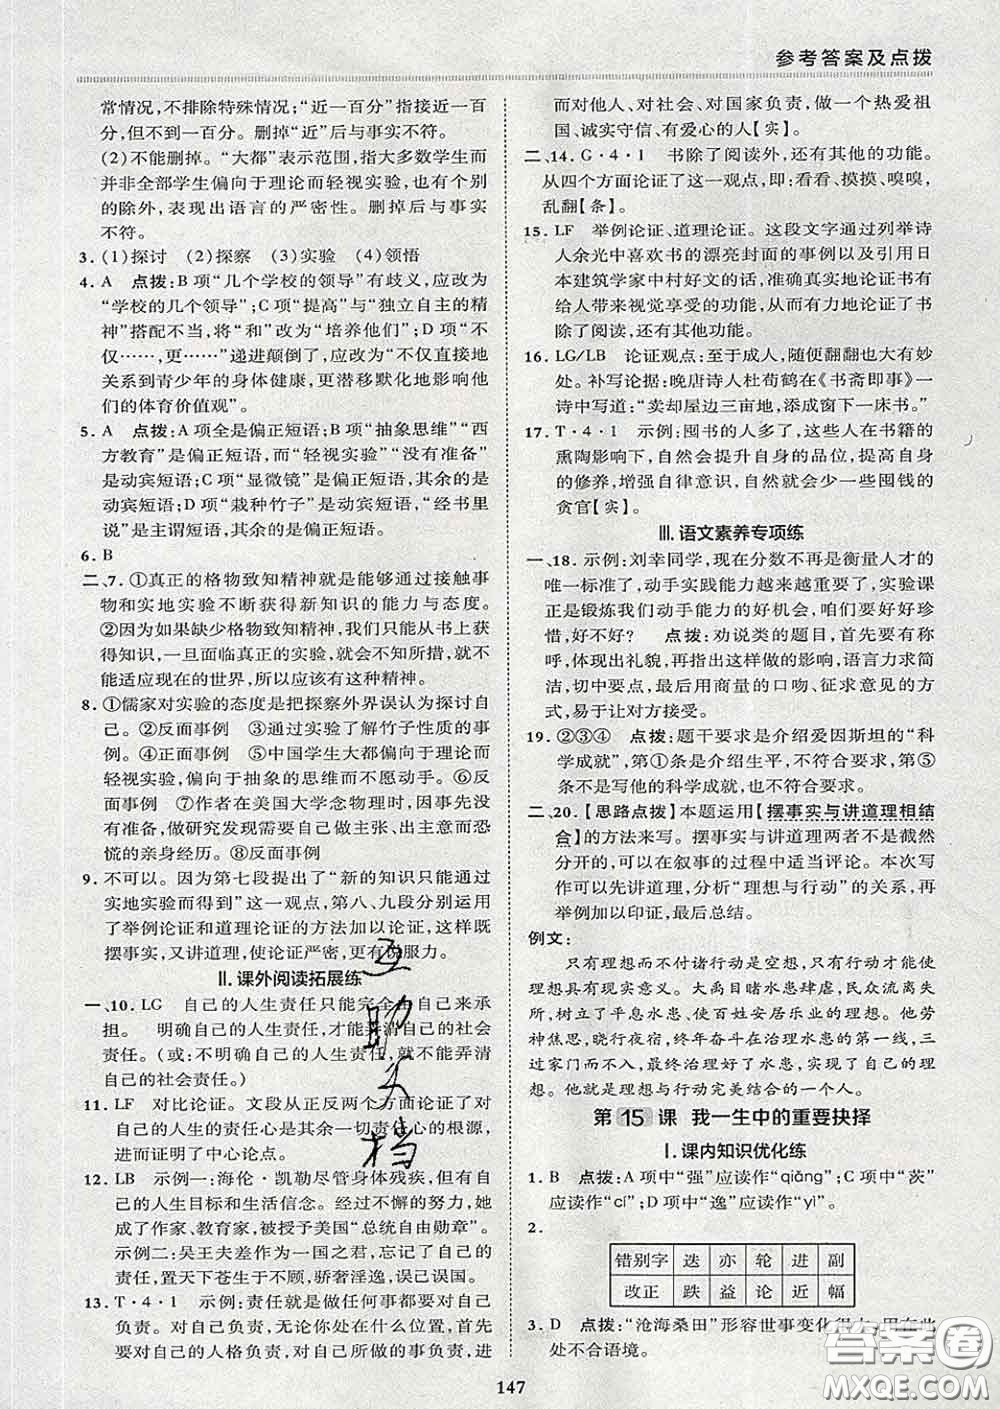 参考答案及点拨
常情况，不排除特殊情况；“近一百分”指十分接近一百
分，但不到一百分。删掉“近”后与事实不符。
(2)不能删掉。“大都”表示范围，指大多数学生而
并非全部学生偏向于理论而轻视实验，也有个别
的除外，表现出语言的严密性。删掉后与事实
不符。
3. (1)探讨　(2)探察　(3)实验　(4)领悟
4. A　点拨：B项“几个学校的领导”有歧义，应改为
“学校的几个领导”；C项“提高”与“独立自主的精
神”搭配不当，将“和”改为“培养他们”；D项“不
仅……，更……”递进颠倒了，应改为“不仅直接地
关系到青少年的身体健康，更潜移默化地影响他
们的体育价值观”。
5. A　点拨：A项全是偏正短语；B项“抽象思维”“西
方教育”是偏正短语，而“轻视实验”“没有准备”是
动宾短语；C项“显微镜”是偏正短语，其余的是
动宾短语；D项“栽种竹子”是动宾短语，“经书里
说”是主谓短语，其余的是偏正短语。
6. B
二、7. ①真正的格物致知精神就是从探索中接触事
物和实地实验不断获得新知识的能力与态度。
②因为如果缺少格物致知精神，我们只能从书上获
得知识，一旦面临真正的实验，就会不知所措，就不
能适应现在的世界，所以应该有这种精神。
8. ①儒家对实验的态度是把探察外界误认为探讨自
己。②反面事例　③通过实验了解竹子性质的事
例。④正面事例　⑤中国学生大都偏向于理论而
轻视实验，偏向于抽象的思维而不愿动手。⑥反
面事例　⑦作者在美国大学念物理时，因为事先没
有准备，做研究时没有办法自己做主张、出主意而恐
慌的亲身经历。⑧反面事例
9. 不可以。因为第七段提出了“新的知识只能通过
实地实验而得到”这一观点，第八、九段分别运用
了举例论证和道理论证的方法加以论证，这样既
摆事实，又讲道理，使论证严密，更有说服力。
Ⅱ. 课外阅读拓展练
一、10. LG　自己的人生责任只能完全由自己来承
担。　明确自己的人生责任，才能弄清自己的社会
责任。（或：不明确自己的人生责任，就不能弄清
自己的社会责任。）
11. LF　对比论证。文段从正反两个方面论证了对
自己的人生的责任心是其余一切责任心的根源，
进而证明了中心论点。
12. LB　示例一：海伦·凯勒尽管身体残疾，但有自
己的人生目标和生活信念。经过不懈的努力，她
成了作家、教育家，被授予美国“总统自由勋章”。
示例二：吴王夫差作为一国之君，忘记了自己的
责任，置天下苍生于不顾，骄奢淫逸，误己误国。
13. T·4·1　示例：责任就是做任何事都要对自己
负责。对自己负责，无论你处在什么位置，首先
要对自己的人格负责，对自己所做的事负责，进
而对他人、对社会、对国家负责，做一个热爱祖
国、诚实守信、有爱心的人【实】。
二、14. G·4·1　书除了阅读外，还有其他的功能。
从四个方面论证了这一观点，即：看看、摸摸、嗅嗅，
乱翻【条】。
15. LF　举例论证、道理论证。这段文字通过列举诗
人余光中喜欢书的漂亮封面的事例以及引用日
本建筑学家中村好文的话，具体地论证了书有
给人带来视觉享受的功能，从而有力地论证了书
除了阅读，还有其他功能。
16. LG/LB　论证观点：至于成人，随便翻翻也大有妙
处。补写论据：晚唐诗人杜荀鹤在《书斋即事》一
诗中写道：“卖却屋边三亩地，添成窗下一床书。”
17. T·4·1　示例：囤书的人多了，这些人在书籍的
熏陶影响下，自然会提升自身的品位，提高自身
的修养，增强自律意识，自然就会少一些囤钱的
贪官【实】。
Ⅲ. 语文素养专项练
一、18. 示例：刘幸同学，现在分数不再是衡量人才的
唯一标准了，动手实践能力越来越重要了，实验课
正是锻炼我们动手能力的好机会，咱们要好好珍
惜，好不好？　点拨：劝说类的题目，首先要有称
呼，体现出礼貌，再指出这样做的影响，语言力求简
洁，切中要点，最后用商量的口吻、征求意见的方
式，易于让对方接受。
19. ②③④　点拨：题干要求是介绍爱因斯坦的“科
学成就”，第①条是介绍生平，不符合要求，第⑤
条不是写他的科学成就，也不符合要求。
二、20.【思路点拨】本题运用【摆事实与讲道理相结
合】的方法来写。摆事实与讲道理两者不是截然
分开的，可以在叙事的过程中适当评论。本次写
作可以先讲道理，分析“理想与行动”的关系，再
举例加以印证，最后总结。
例文：
只有理想而不付诸行动是空想，只有行动才能使理
想具有现实意义。大禹目睹水患肆虐，民众流离失
所，树立了平息水患、使百姓安居乐业的理想。他劳
神焦思，晓行夜宿，终年奋斗在治理水患的第一线，三
过家门而不入，最终治理好了水患，实现了自己的理
想。他就是理想与行动完美结合的一个人。
第15课　我一生中的重要抉择
Ⅰ. 课内知识优化练
1. B　点拨：A项中“强”应读作“qiǎng”；C项中“茨”
应读作“cí”；D项中“逸”应读作“yì”。
2.
错别字　迭　亦　轮　进　副
改正　跌　益　论　近　幅
3. D　点拨：“沧海桑田”形容世事变化很大，用在此
处不合语境。
147
互
助
文
档
答案圈
MXQE.COM